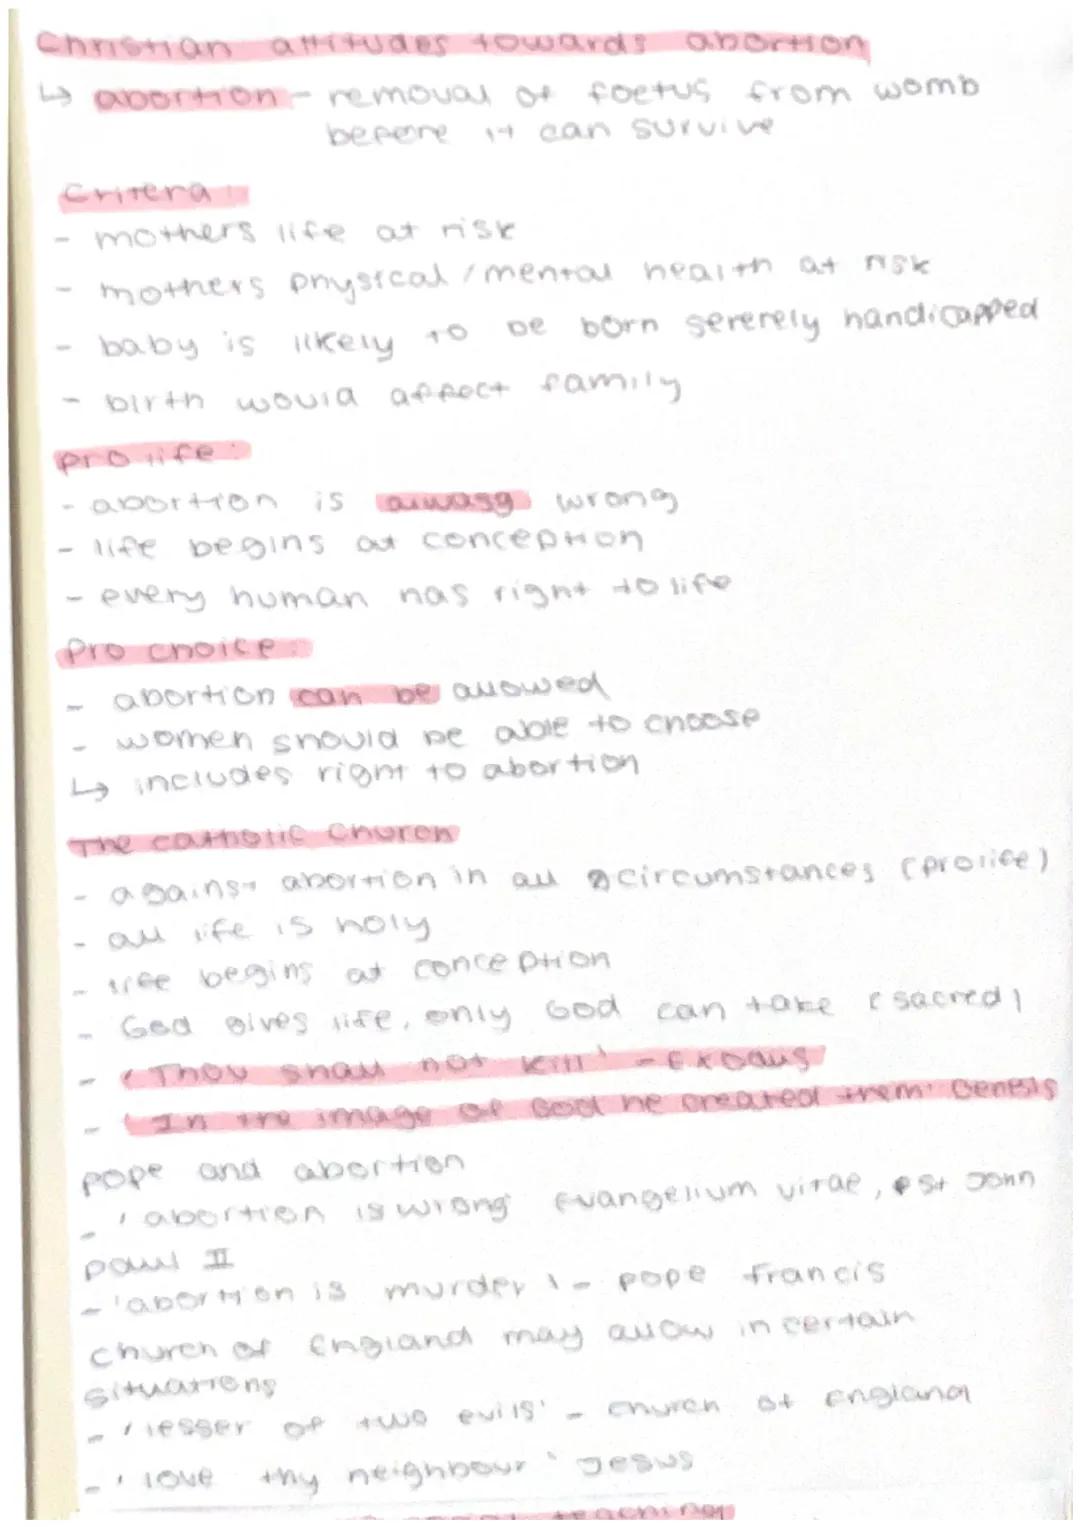 Christian attitudes towards abortion
↳ abortion - removal of foetus from womb
before it can survive
Critera:
- mothers life at risk
- mothers physical / mental health at risk
- baby is likely to be born sererely handicapped
- birth would affect family
pro life:
- abortion is always wrong
- life begins at conception
- every human has right to life
Pro choice:
- abortion can be allowed
- women should be able to choose
↳ includes right to abortion
The catholic Church
- against abortion in all circumstances (prolife)
- all life is holy
- life begins at conception
- God gives life, only God can take (sacred)
- 'Thou shall not kill' - Exodus
- 'In the image of God he created them' Genesis
pope and abortion
- 'abortion is wrong' Evangelium vitae, st John
paul II
- 'abortion is murder' - pope francis
church of England may allow in certain
situations
- 'lesser of two evils' - church of England
- 'love thy neighbour' Jesus
teaching